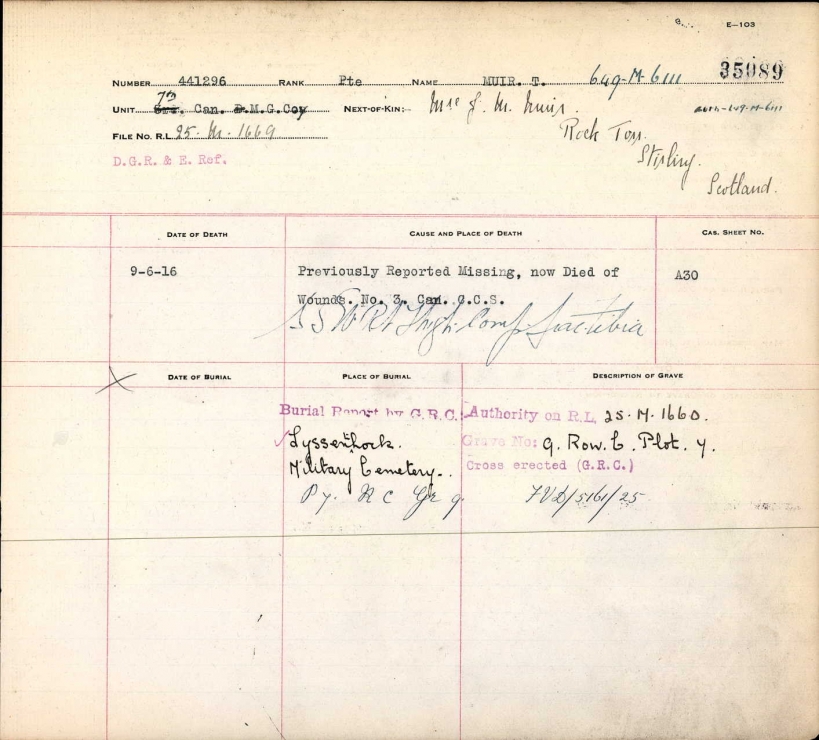 E-103
35089
NUMBER 441296 RANK Pte NAME MUIR. T. 649-M-6111
7th
UNIT Can. D.M.G.Coy NEXT-OF-KIN:- Mrs J. M. Muir.
649-M-6111
FILE No. R.L. 25. M. 1669 Rock Terr.
D.G.R. & E. Ref. Stirling.
Scotland.
DATE OF DEATH CAUSE AND PLACE OF DEATH CAS. SHEET No.
9-6-16 Previously Reported Missing, now Died of A30
Wounds. No. 3. Can. C.C.S.
S S W Rt Thigh Comp frac tibia
DATE OF BURIAL PLACE OF BURIAL DESCRIPTION OF GRAVE
Burial Report by G.R.C. Authority on R.L. 25. M. 1660.
Lyssenthock. Grave No: 9. Row. C. Plot. 7.
Military Cemetery. Cross erected (G.R.C.)
P 7. R C Gr 9